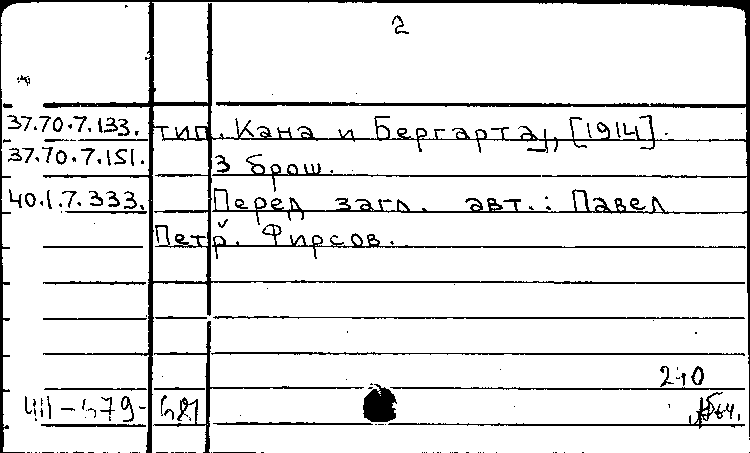 2
37.70.7.133. тип. Кана и Бергарта], [1914].
37.70.7.151. 3 брош.
40.1.7.333. Перед загл. авт.: Павел
Петр. Фирсов.
210